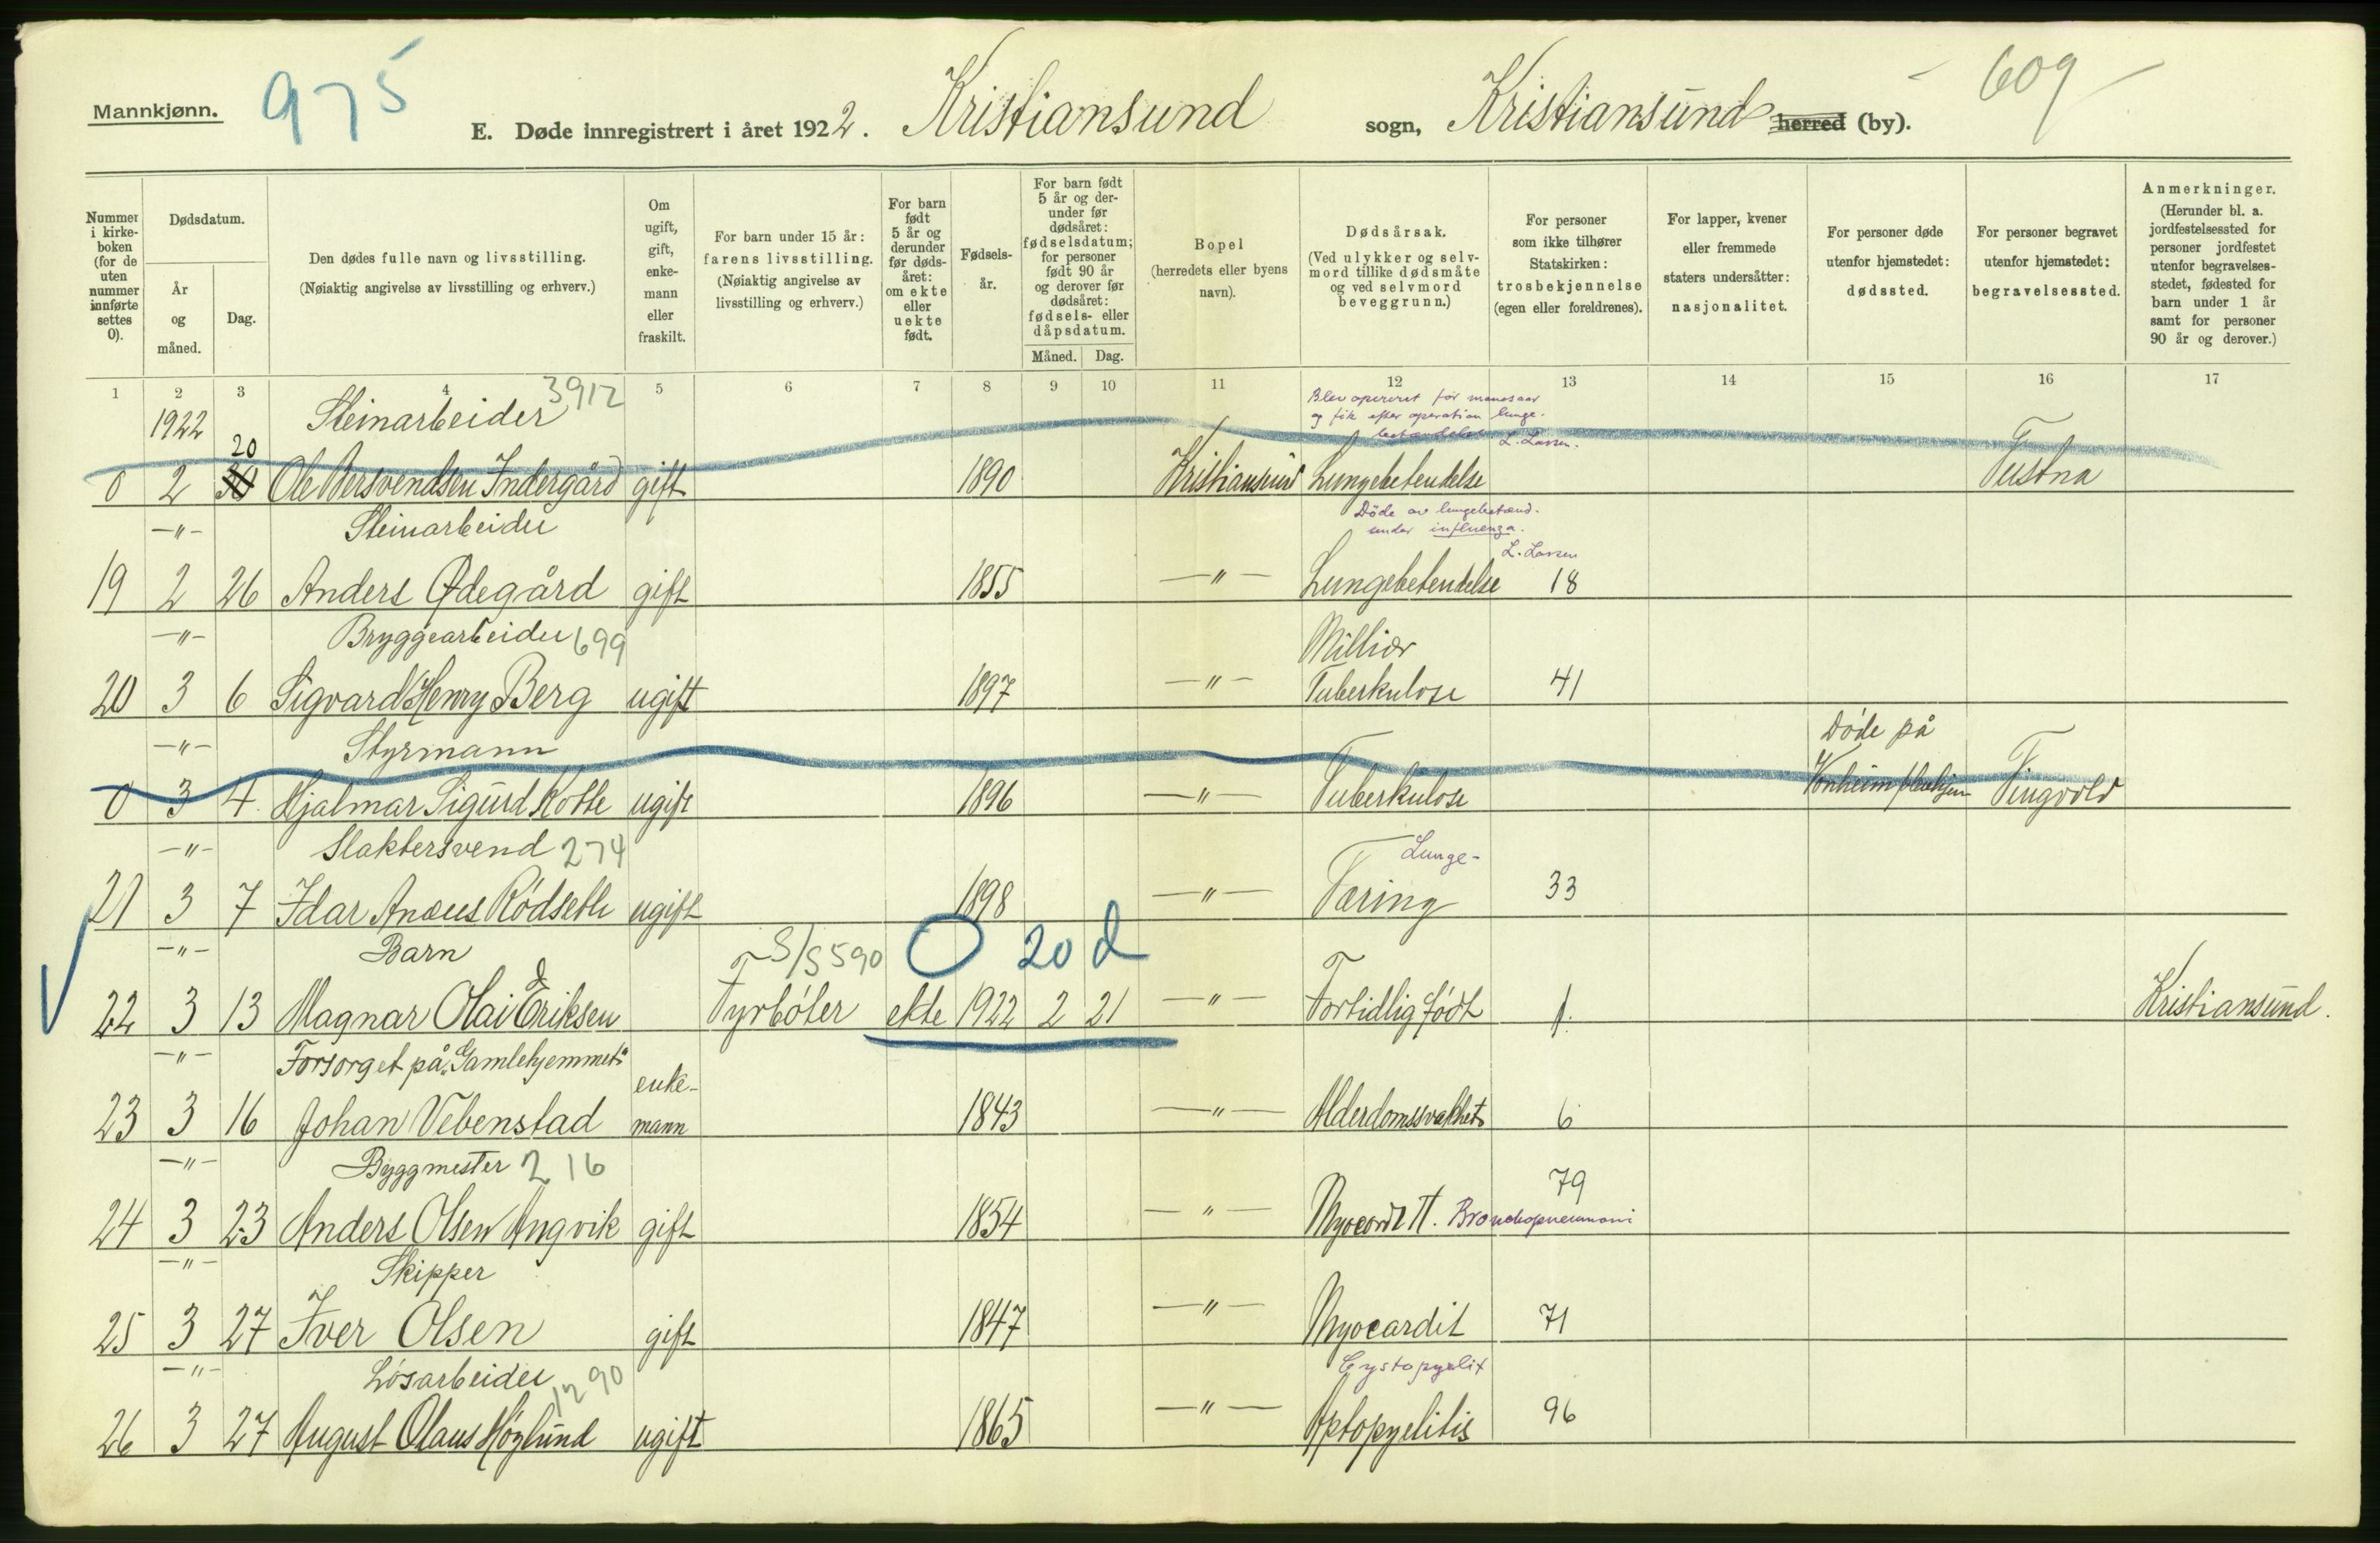 Mannkjønn. 975
E. Døde innregistrert i året 1922. Kristiansund sogn, Kristiansund herred (by). 609
Nummer i kirkeboken (for de uten nummer innførte settes 0).
Dødsdatum.
År og måned.
Dag.
Den dødes fulle navn og livsstilling.
(Nøiaktig angivelse av livsstilling og erhverv.)
Om ugift, gift, enkemann eller fraskilt.
For barn under 15 år: farens livsstilling.
(Nøiaktig angivelse av livsstilling og erhverv.)
For barn født 5 år og derunder før dødsåret: om ekte eller uekte født.
Fødselsår.
For barn født 5 år og derunder før dødsåret: fødselsdatum; for personer født 90 år og derover før dødsåret: fødsels- eller dåpsdatum.
Måned. Dag.
Bopel
(herredets eller byens navn).
Dødsårsak.
(Ved ulykker og selvmord tillike dødsmåte og ved selvmord beveggrunn.)
For personer som ikke tilhører Statskirken: trosbekjennelse (egen eller foreldrenes).
For lapper, kvener eller fremmede staters undersåtter: nasjonalitet.
For personer døde utenfor hjemstedet: dødssted.
For personer begravet utenfor hjemstedet: begravelsessted.
Anmerkninger.
(Herunder bl. a. jordfestelsessted for personer jordfestet utenfor begravelsesstedet, fødested for barn under 1 år samt for personer 90 år og derover.)
1 2 3 4 5 6 7 8 9 10 11 12 13 14 15 16 17
1922 Steinarbeider 3912 Blev opereret for mavesaar
og fik efter operation lunge-
betændelse L. Larsen.
20
0 2 Ole Bersvendsen Indergård gift 1890 Kristiansund Lungebetendelse Tustna
-"- Steinarbeider Döde av lungebetænd.
under influenza.
L. Larsen
19 2 26 Anders Ødegård gift 1855 -"- Lungebetendelse 18
-"- Bryggearbeider 699 Milliær
20 3 6 Sigvard Henry Berg ugift 1897 -"- Tuberkulose 41
-"- Styrmann Døde på
0 3 4 Hjalmar Sigurd Kotte ugift 1896 -"- Tuberkulose Tingvold
-"- Slaktersvend 274 Lunge-
21 3 7 Idar Anæus Rødseth ugift 1898 -"- Tæring 33
-"- Barn S/S 590 0 20 d
22 3 13 Magnar Olai Eriksen Fyrbøter ekte 1922 2 21 -"- Fortidlig født 1. Kristiansund.
-"- Forsorget på "Gamlehjemmet"
enke-
23 3 16 Johan Vebenstad mann 1843 -"- Alderdomssvakhet 6
-"- Byggmester 216 79
24 3 23 Anders Olsen Angvik gift 1854 -"- Myocardit. Bronchopneumoni
-"- Skipper
25 3 27 Iver Olsen gift 1847 -"- Myocardit 71
-"- Løsarbeider 1290 Cystopyelit
26 3 27 August Olaus Høglund ugift 1865 -"- 96